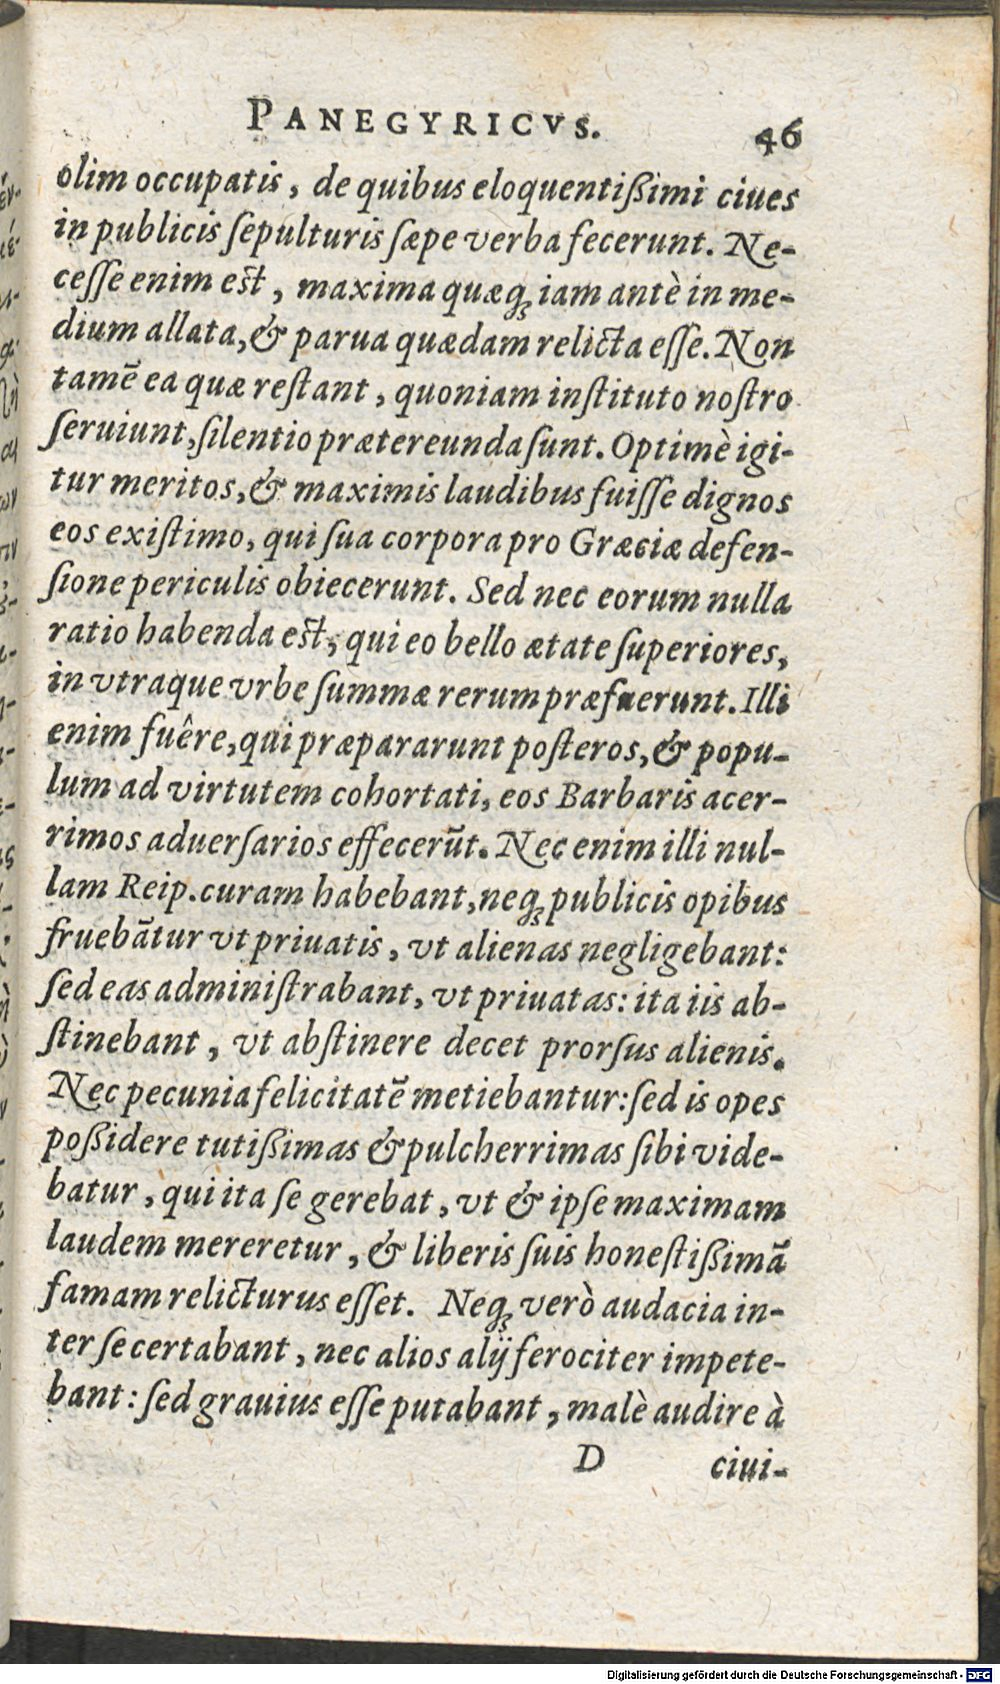 PANEGYRICVS. 46
olim occupatis, de quibus eloquentißimi ciues
in publicis ſepulturis ſæpe verba fecerunt. Ne-
ceſſe enim eſt, maxima quæq́ꝫ iam antè in me-
dium allata, & parua quædam relicta eſſe. Non
tamẽ ea quæ reſtant, quoniam inſtituto noſtro
ſeruiunt, ſilentio prætereunda ſunt. Optimè igi-
tur meritos, & maximis laudibus fuiſſe dignos
eos exiſtimo, qui ſua corpora pro Græciæ defen-
ſione periculis obiecerunt. Sed nec eorum nulla
ratio habenda eſt, qui eo bello ætate ſuperiores,
in vtraque vrbe ſummæ rerum præfuerunt. Illi
enim fuêre, qui præpararunt poſteros, & popu-
lum ad virtutem cohortati, eos Barbaris acer-
rimos aduerſarios effecerũt. Nec enim illi nul-
lam Reip. curam habebant, neqꝫ publicis opibus
fruebãtur vt priuatis, vt alienas negligebant:
ſed eas adminiſtrabant, vt priuatas: ita iis ab-
ſtinebant, vt abſtinere decet prorſus alienis.
Nec pecunia felicitatẽ metiebantur: ſed is opes
poßidere tutißimas & pulcherrimas ſibi vide-
batur, qui ita ſe gerebat, vt & ipſe maximam
laudem mereretur, & liberis ſuis honeſtißimã
famam relicturus eſſet. Neqꝫ verò audacia in-
ter ſe certabant, nec alios alij ferociter impete-
bant: ſed grauius eſſe putabant, malè audire à
D ciui-
Digitalisierung gefördert durch die Deutsche Forschungsgemeinschaft - DFG